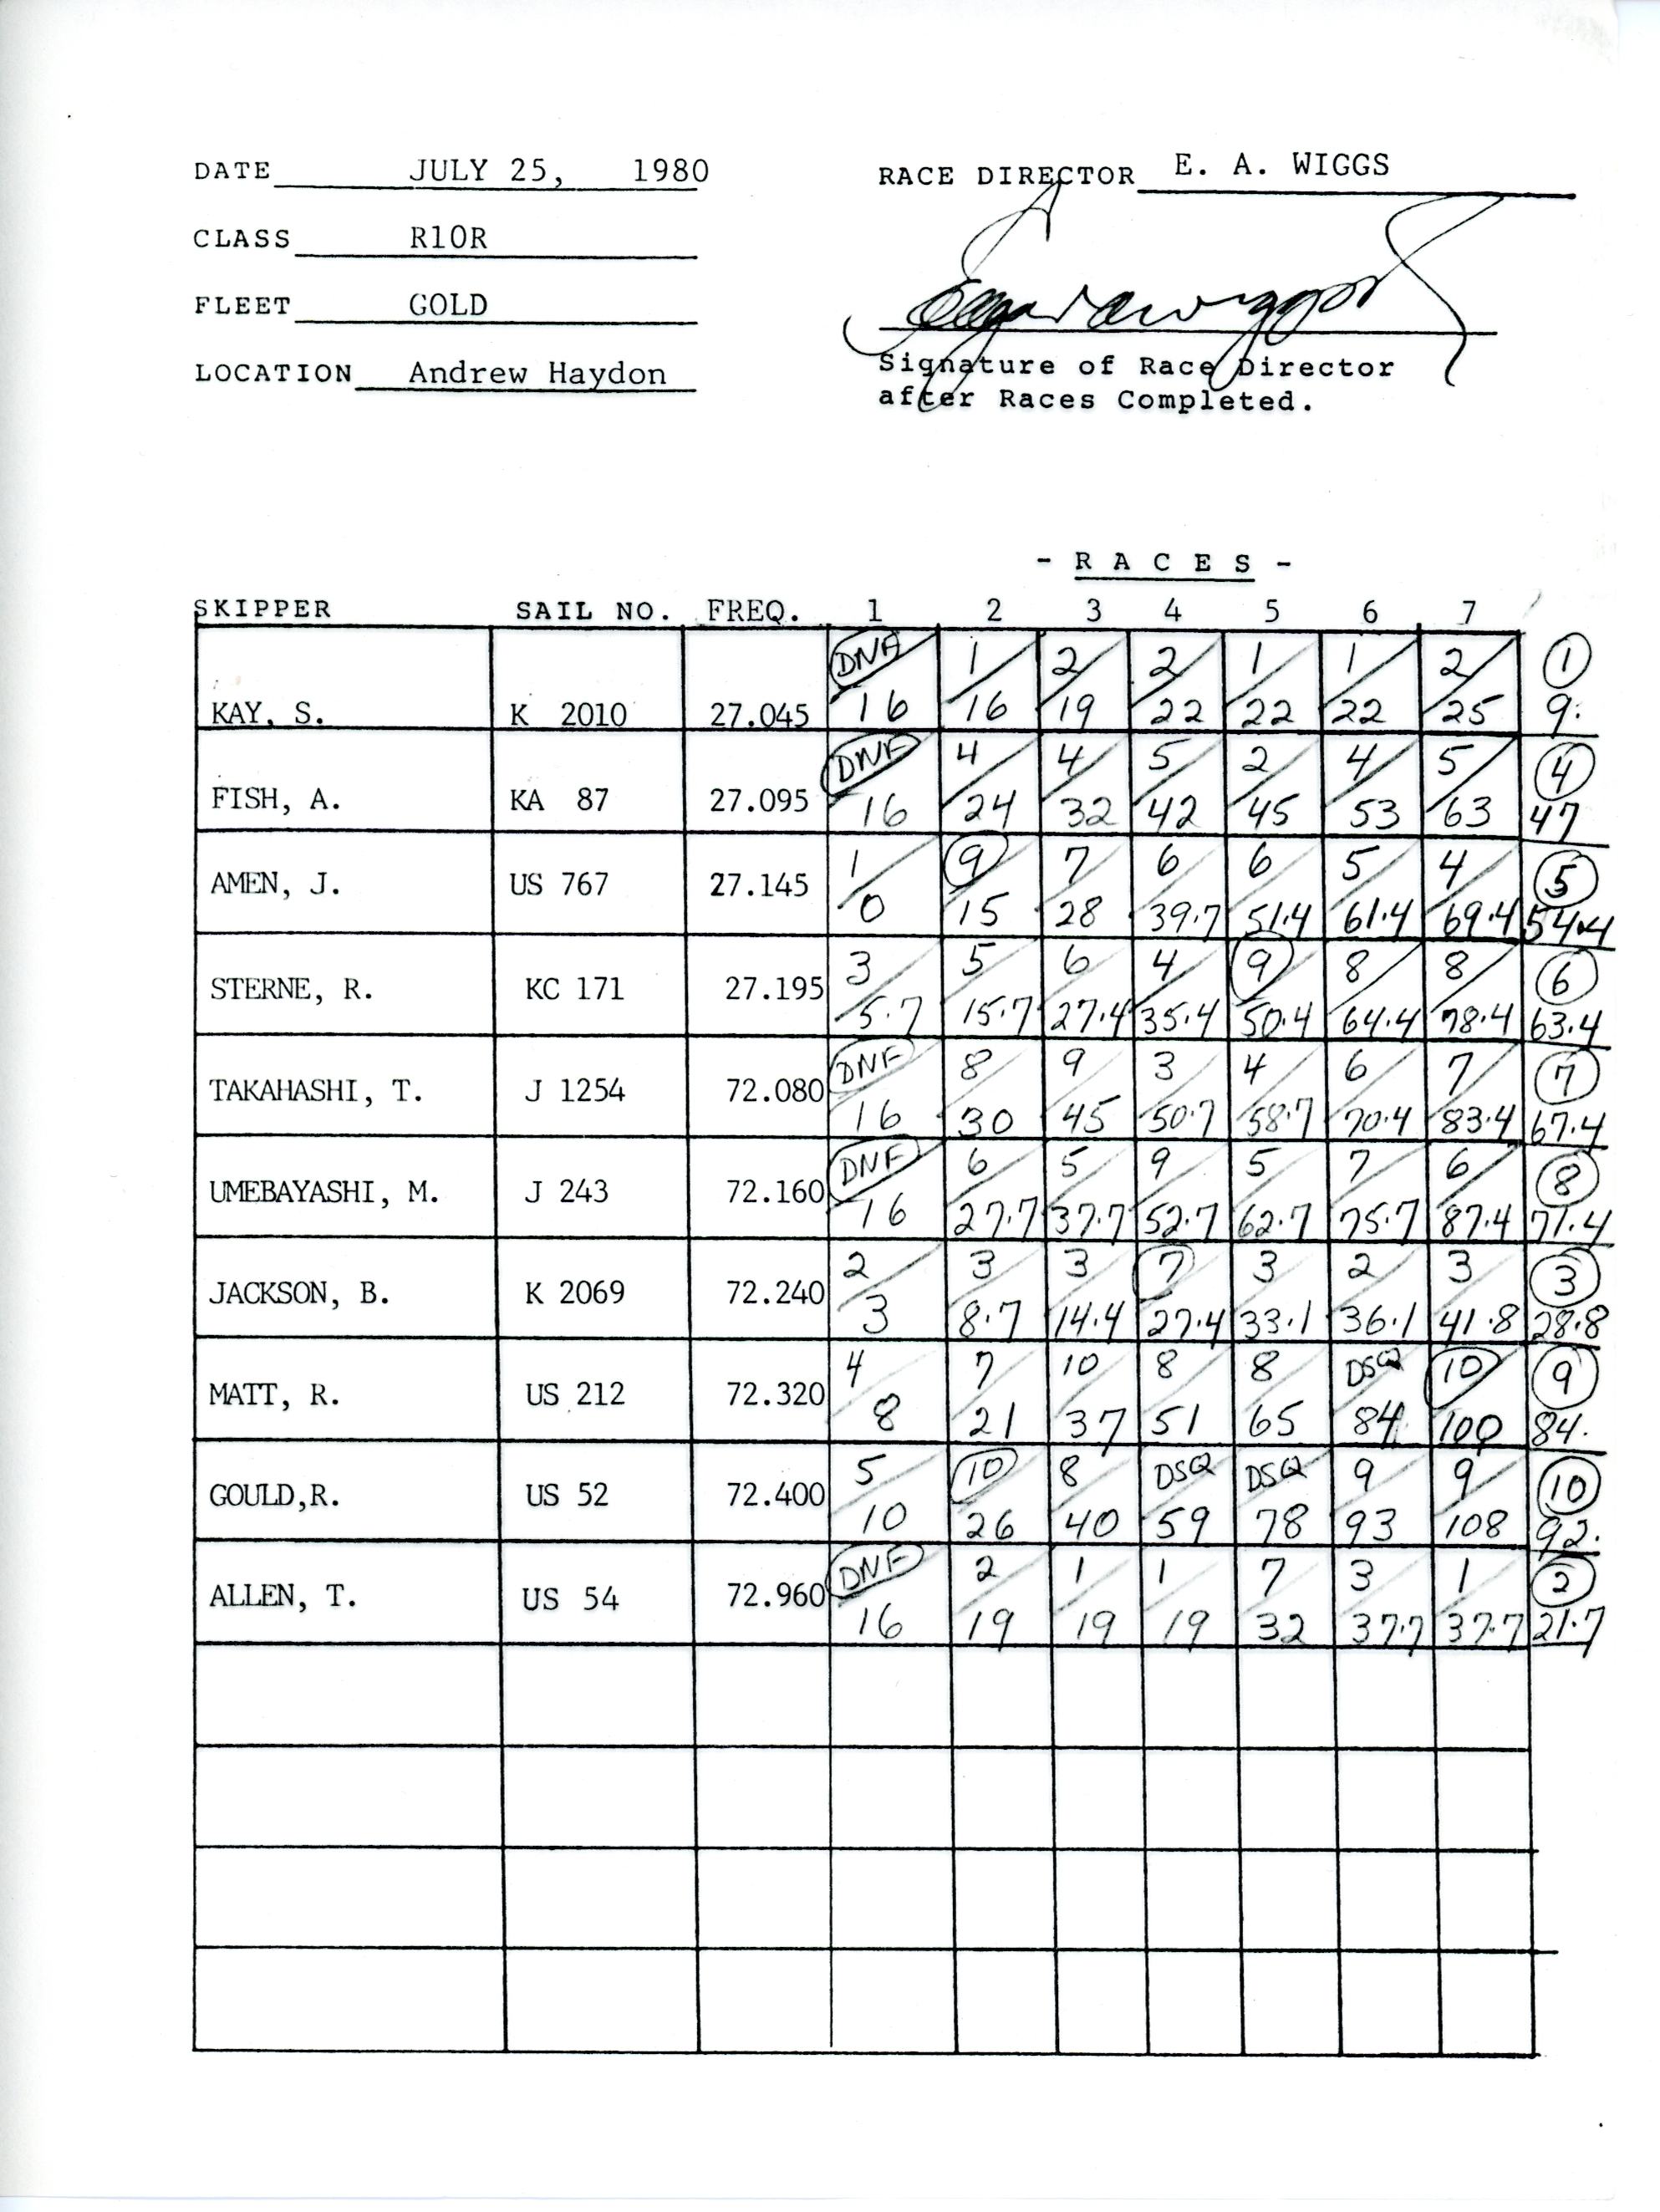 DATE JULY 25, 1980
RACE DIRECTOR E. A. WIGGS
CLASS R10R
FLEET GOLD
LOCATION Andrew Haydon
Signature of Race Director
after Races Completed.
- R A C E S -
SKIPPER SAIL NO. FREQ. 1 2 3 4 5 6 7
DNF 1 2 2 1 1 2 1
KAY, S. K 2010 27.045 16 16 19 22 22 22 25 9.
DNF 4 4 5 2 4 5 4
FISH, A. KA 87 27.095 16 24 32 42 45 53 63 47
1 9 7 6 6 5 4 5
AMEN, J. US 767 27.145 0 15 28 39.7 51.4 61.4 69.4 54.4
3 5 6 4 9 8 8 6
STERNE, R. KC 171 27.195 5.7 15.7 27.4 35.4 50.4 64.4 78.4 63.4
DNF 8 9 3 4 6 7 7
TAKAHASHI, T. J 1254 72.080 16 30 45 50.7 58.7 70.4 83.4 67.4
DNF 6 5 9 5 7 6 8
UMEBAYASHI, M. J 243 72.160 16 27.7 37.7 52.7 62.7 75.7 87.4 71.4
2 3 3 7 3 2 3 3
JACKSON, B. K 2069 72.240 3 8.7 14.4 27.4 33.1 36.1 41.8 28.8
4 7 10 8 8 DSQ 10 9
MATT, R. US 212 72.320 8 21 37 51 65 84 100 84.
5 10 8 DSQ DSQ 9 9 10
GOULD,R. US 52 72.400 10 26 40 59 78 93 108 92.
DNF 2 1 1 7 3 1 2
ALLEN, T. US 54 72.960 16 19 19 19 32 37.7 37.7 21.7